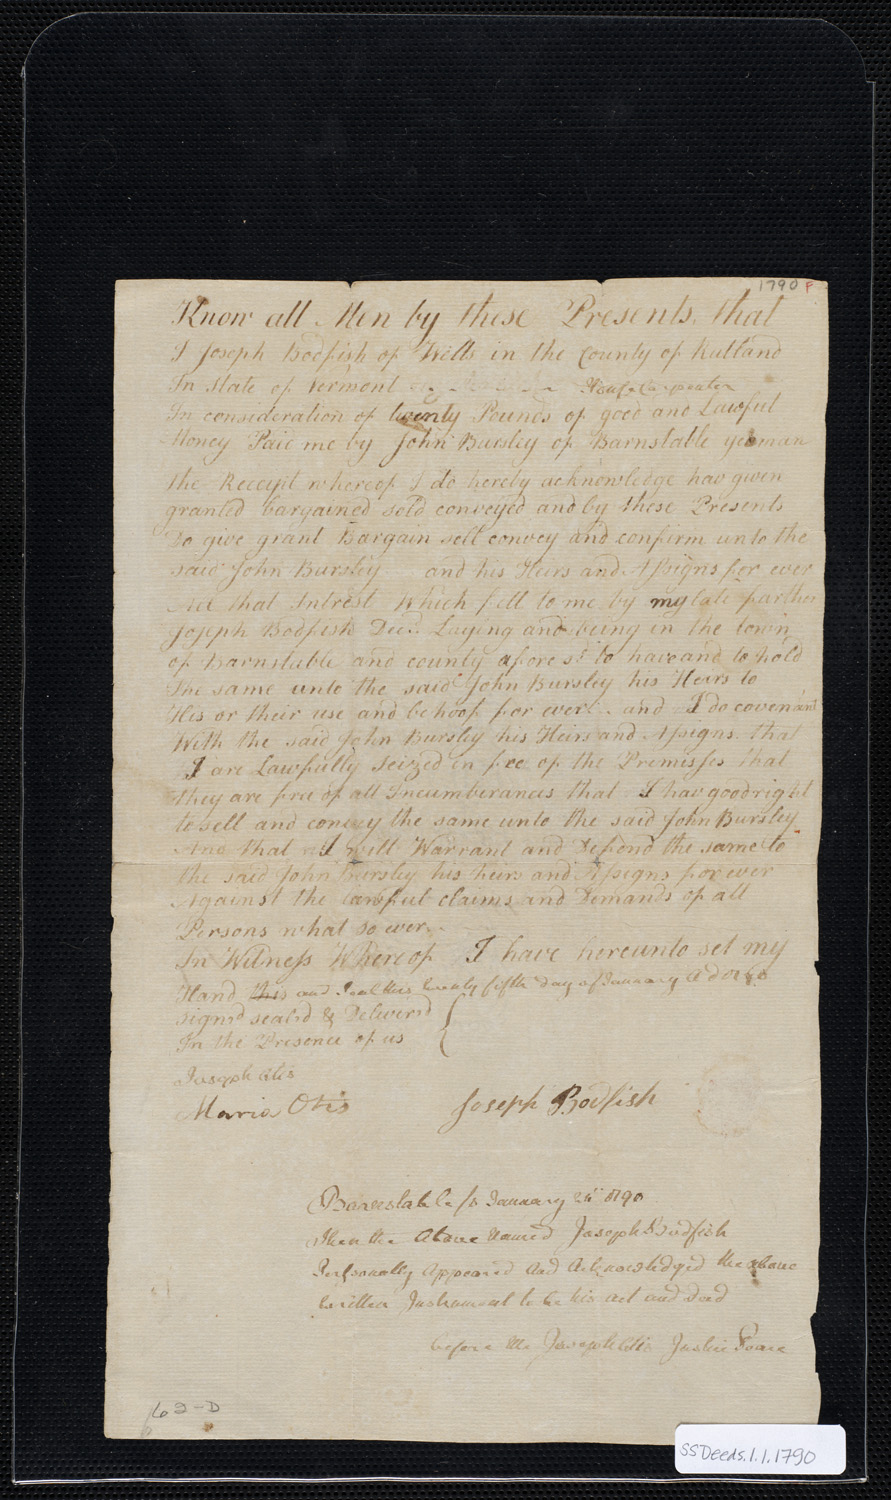 1790 F
Know all Men by these Presents that
I Joseph Bodfish of Wells in the County of Rutland
In State of Vermont House Carpenter
In consideration of twenty Pounds of good and Lawful
Money Paid me by John Bursley of Barnstable yeoman
the Receipt whereof I do hereby acknowledge hav given
granted bargained sold conveyed and by these Presents
Do give grant Bargain sell convey and confirm unto the
said John Bursley and his Heirs and Assigns for ever
All that Intrest Which fell to me by my late farther
Joseph Bodfish Decd. Laying and being in the town
of Barnstable and county afore sd to have and to hold
The same unto the said John Bursley his Heirs to
His or their use and behoof for ever and I do covenant
With the said John Bursley his Heirs and Assigns that
I are Lawfully Seized in fee of the Premisses that
they are free of all Incumberances that I hav good right
to sell and convey the same unto the said John Bursley
And that I will Warrant and Defend the same to
the said John Bursley his heirs and Assigns for ever
Against the lawful claims and Demands of all
Persons what so ever
In Witness Whereof I have hereunto set my
Hand this and Seal this twenty fifth Day of January AD 1790
signd seald & Deliverd
In the Presence of us
Joseph Otis
Maria Otis Joseph Bodfish
Barnstable ss January 25 1790
Then the Above Named Joseph Bodfish
Personally Appeared and Acknowledged the above
written Instrument to be his act and Deed
before Me Joseph Otis Justice Peace
62-D
SSDeeds.1.1.1790